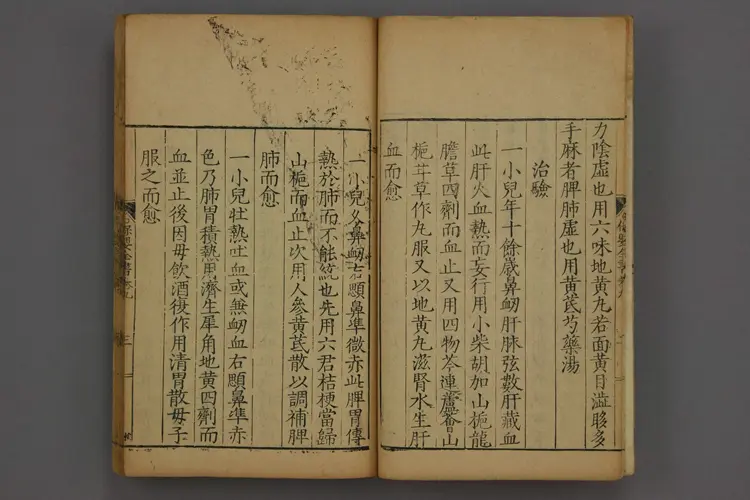 力陰虛也用六味地黃丸若面黃目澁眵多
手麻者脾肺虛也用黃芪芍藥湯
治驗
一小兒年十餘歲鼻衂肝脉弦數肝藏血
此肝火血熱而妄行用小柴胡加山梔龍
膽草四劑而血止又用四物芩連蘆薈山
梔甘草作丸服又以地黃丸滋腎水生肝
血而愈
一小兒久鼻衂右顋鼻準微赤此脾胃傳
熱於肺而不能統也先用六君桔梗當歸
山梔而血止次用人參黃芪散以調補脾
肺而愈
一小兒壯熱吐血或無衂血右顋鼻準赤
色乃肺胃積熱用濟生犀角地黃四劑而
血並止後因母飲酒復作用清胃散母子
服之而愈
保嬰全書卷九